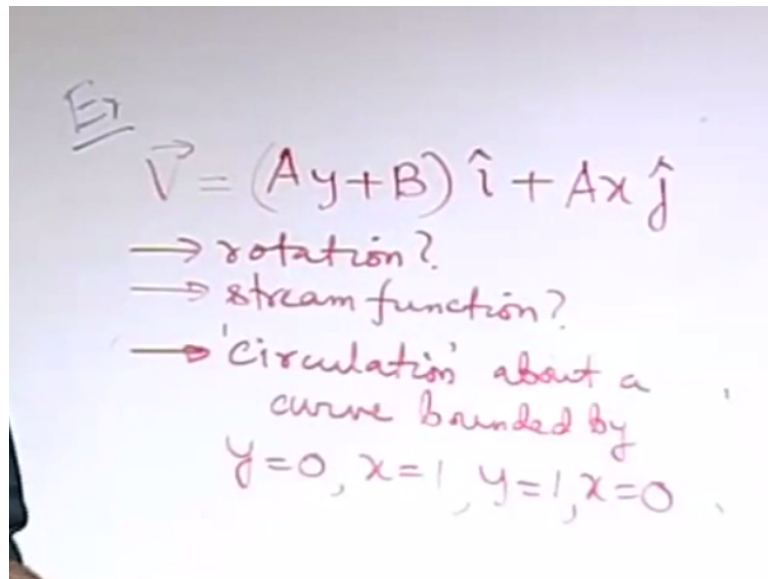 Ex
V⃗ = (Ay+B) î + Ax ĵ
→ rotation?
→ stream function?
→ 'circulation' about a
curve bounded by
y=0, x=1, y=1, x=0